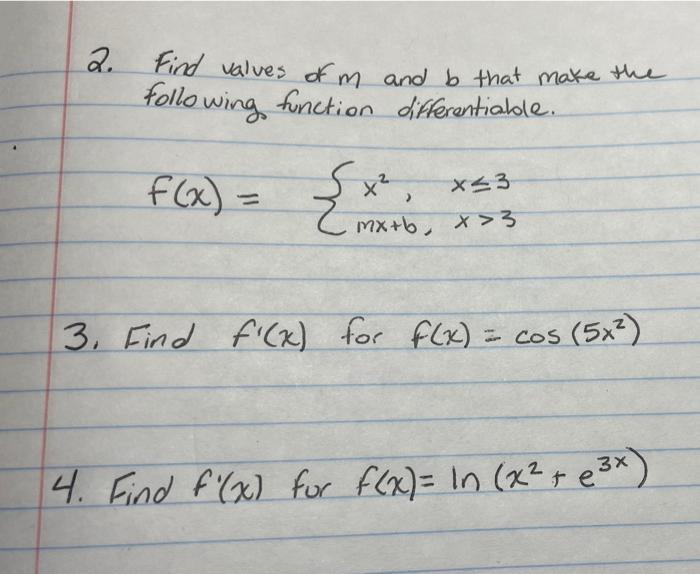 2. Find values of m and b that make the
following function differentiable.
f(x) = { x², x≤3
mx+b, x>3
3. Find f'(x) for f(x) = cos (5x²)
4. Find f'(x) for f(x) = ln (x² + e³ˣ)